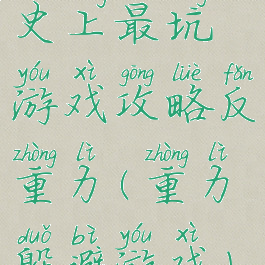 史上最坑
yóu xì gōng lüè fǎn
游戏攻略反
zhòng lì zhòng lì
重力(重力
duǒ bì yóu xì
躲避游戏)